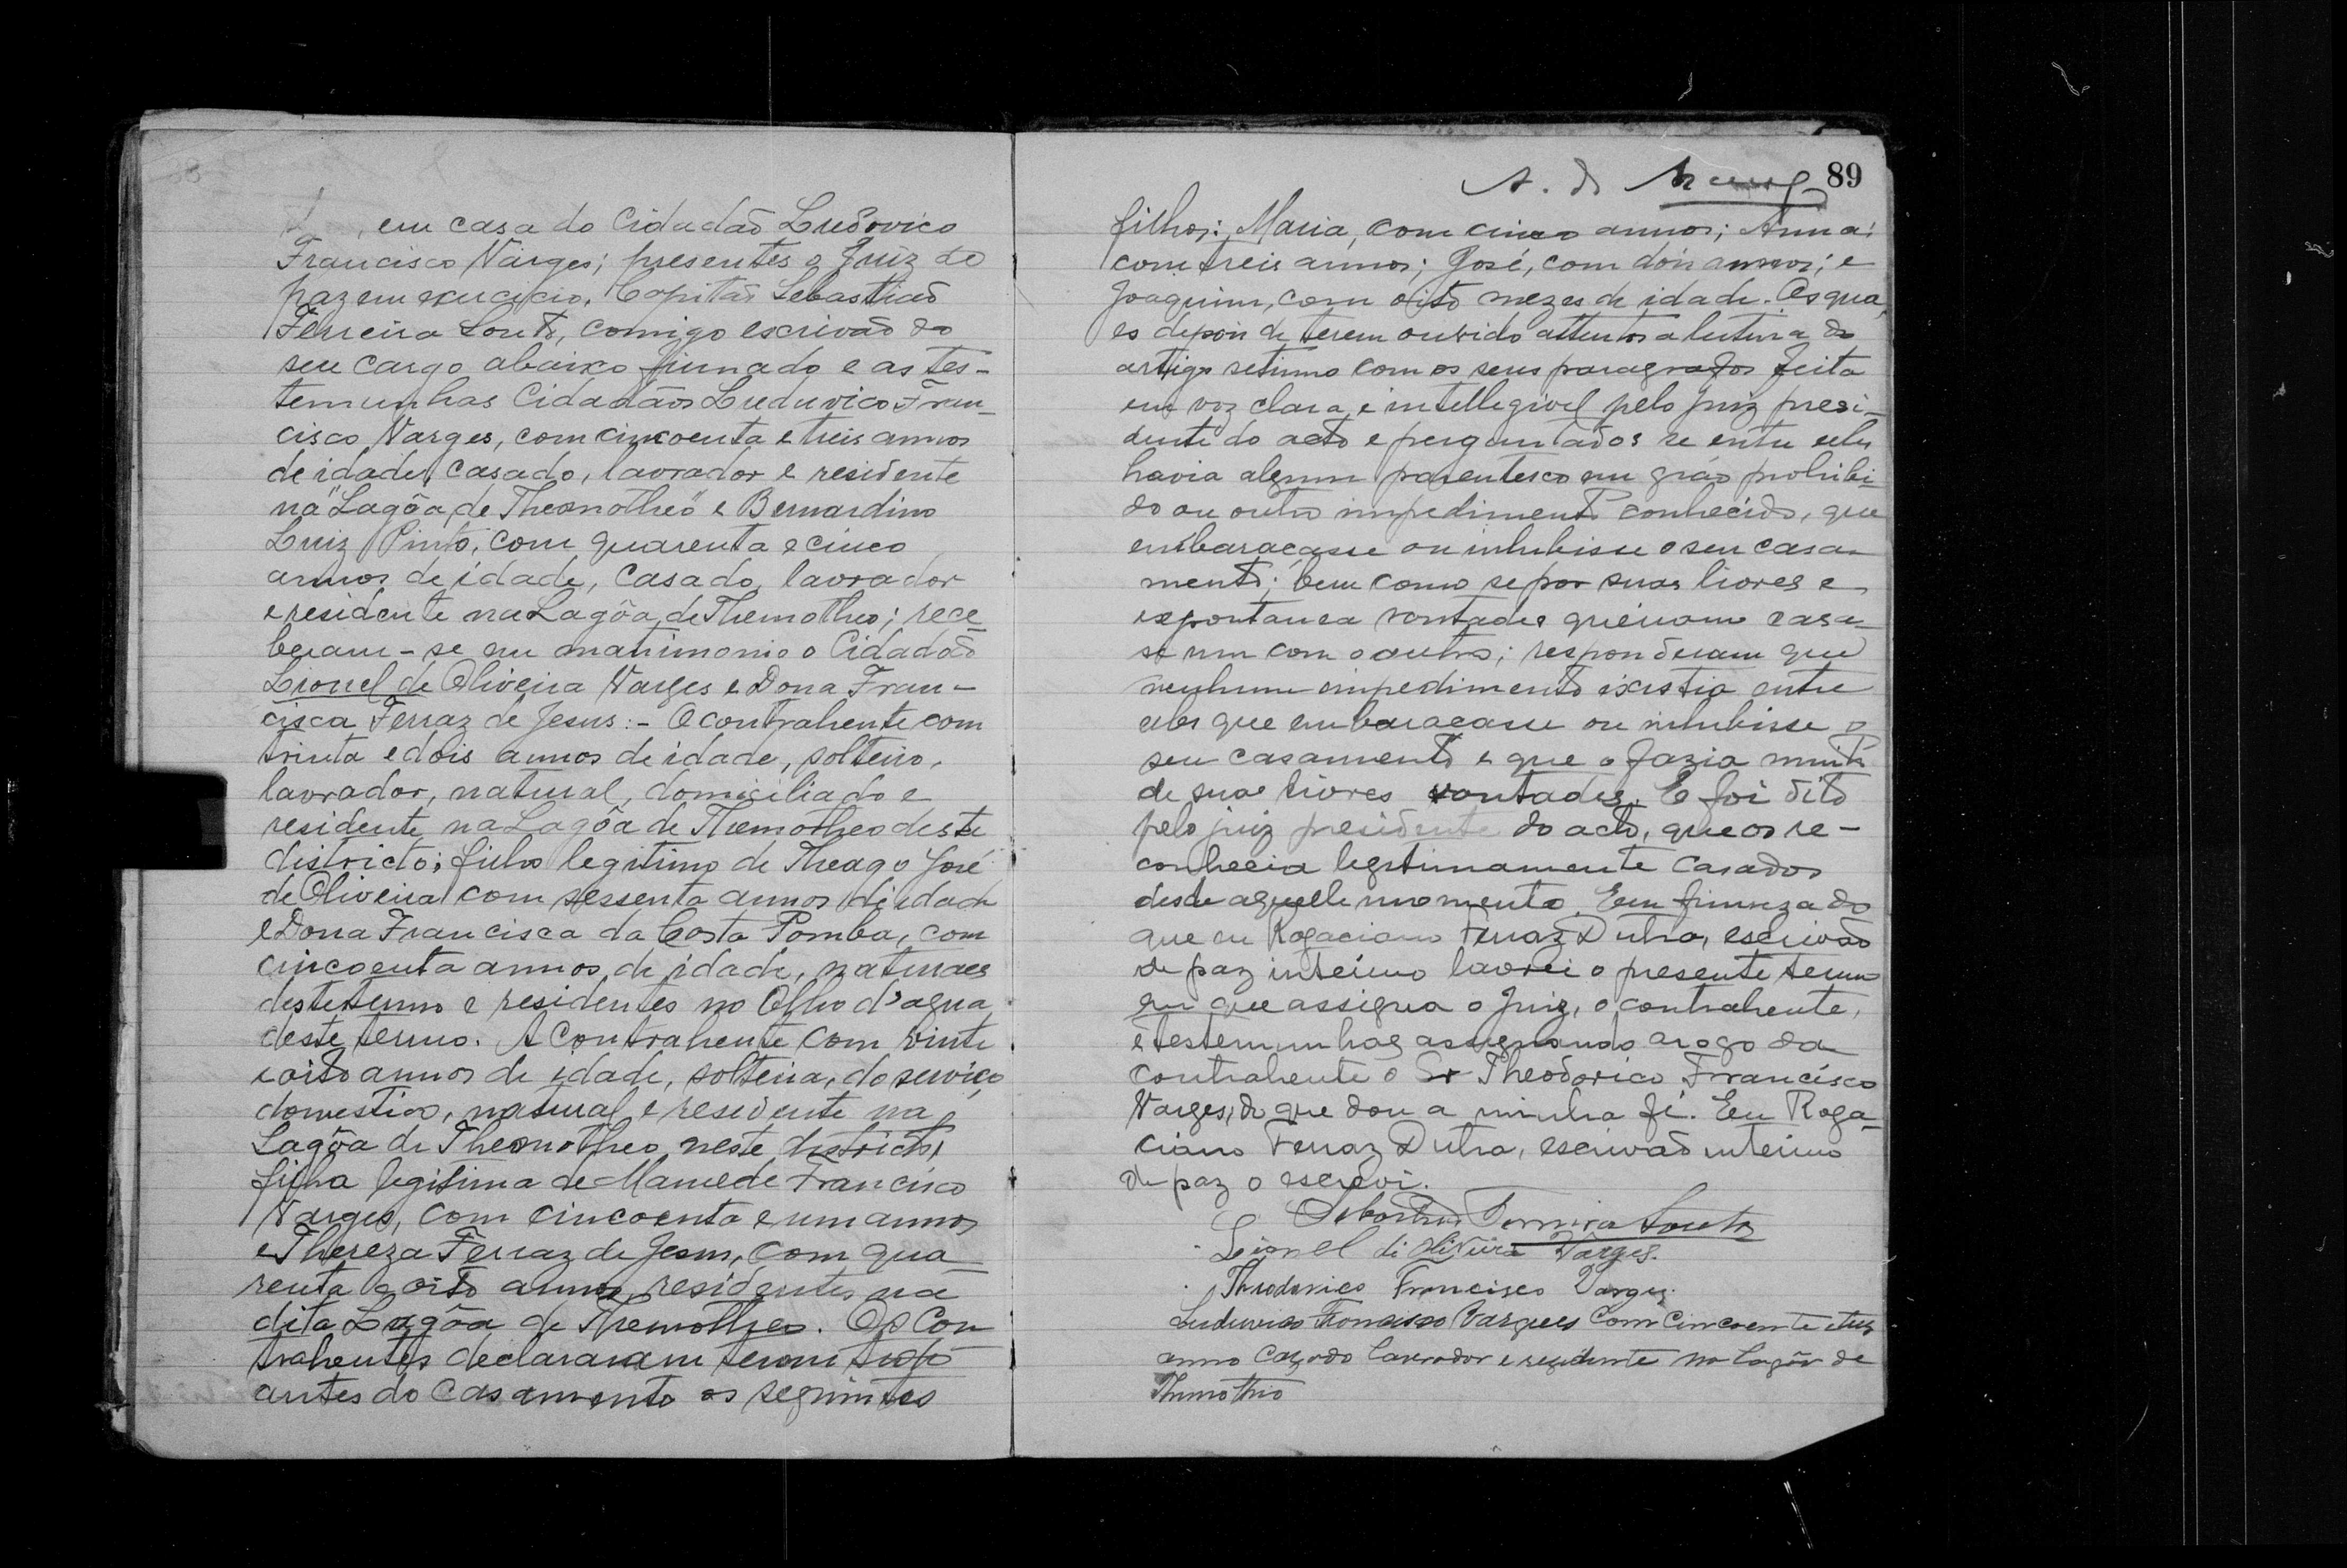 em casa do Cidadaõ Ludovico
Francisco Varges; presentes o Juiz de
paz em exercicio, Capitaõ Sebastiaõ
Ferreira Souto, comigo escrivaõ do
seu cargo abaixo firmado e as tes-
temunhas Cidadaõs Luduvico Fran-
cisco Varges, com cincoenta e treis annos
de idade, casado, lavrador e residente
na "Lagôa de Themotheo" e Bernardino
Luiz Pinto, com quarenta e cinco
annos de idade, casado, lavrador
e residente na Lagôa de Themotheo; rece-
beram-se em matrimonio o Cidadaõ
Lionel de Oliveira Varges e Dona Fran-
cisca Ferraz de Jesus:- O contrahente com
trinta e dois annos de idade, solteiro,
lavrador, natural, domiciliado e
residente na Lagôa de Themotheo deste
districto; filho legitimo de Theago José
de Oliveira com sessenta annos de idade
e Dona Francisca da Costa Pomba, com
cincoenta annos de idade, naturaes
deste termo e residentes no Olho d'agua
deste termo. A Contrahente com vinte
e oito annos de idade, solteira, do serviço
domestico, natural e residente na
Lagôa de Themotheo neste districto,
filha legitima de Mamede Francisco
Varges, com cincoenta e um annos
e Thereza Ferraz de Jesus, com qua-
renta e oito annos, residentes na
dita Lagôa de Themotheo. Os Con-
trahentes declararam terem tido
antes do casamento os seguintes
89
A. de
filhos: Maria, com cinco annos; Anna:
com treis annos; José, com dois annos; e
Joaquim, com oito mezes de idade. Os qua-
es depois de terem ouvido attentos a leitura do
artigo setimo com os seus paragrafos feita
em voz clara e intellegivel pelo juiz presi-
dente do acto e perguntados se entre elles
havia algum parentesco em gráo prohibi-
do ou outro impedimento conhecido, que
embaraçasse ou inhibisse o seu casa-
mento; bem como se por suas livres e
espontanea vontades queriam casa-
se um com o outro; responderam que
nenhum empedimento existia entre
eles que embaraçasse ou inhibisse o
seu casamento e que o fazia muito
de suas livres vontades. E foi dito
pelo juiz presidente do acto, que os re-
conhecia legitimamente casados
desde aquelle momento. Em firmeza do
que eu Rogaciano Ferraz Dutra, escrivaõ
de paz interino lavrei o presente termo
em que assigna o Juiz, o contrahente,
e testemunhas assignando a rogo da
contrahente o Sr Theodorico Francisco
Varges, do que dou a minha fé. Eu Roga-
ciano Ferraz Dutra, escrivaõ interino
de paz o escrevi.
Sebastião Ferreira Souto
Leionel di Oliveira Varges.
Theodorico Francisco Varges.
Luduvico Francisco Vargues com cincoente e treis
anno cazado lavrador e rezidente na lagôa de
Themothio